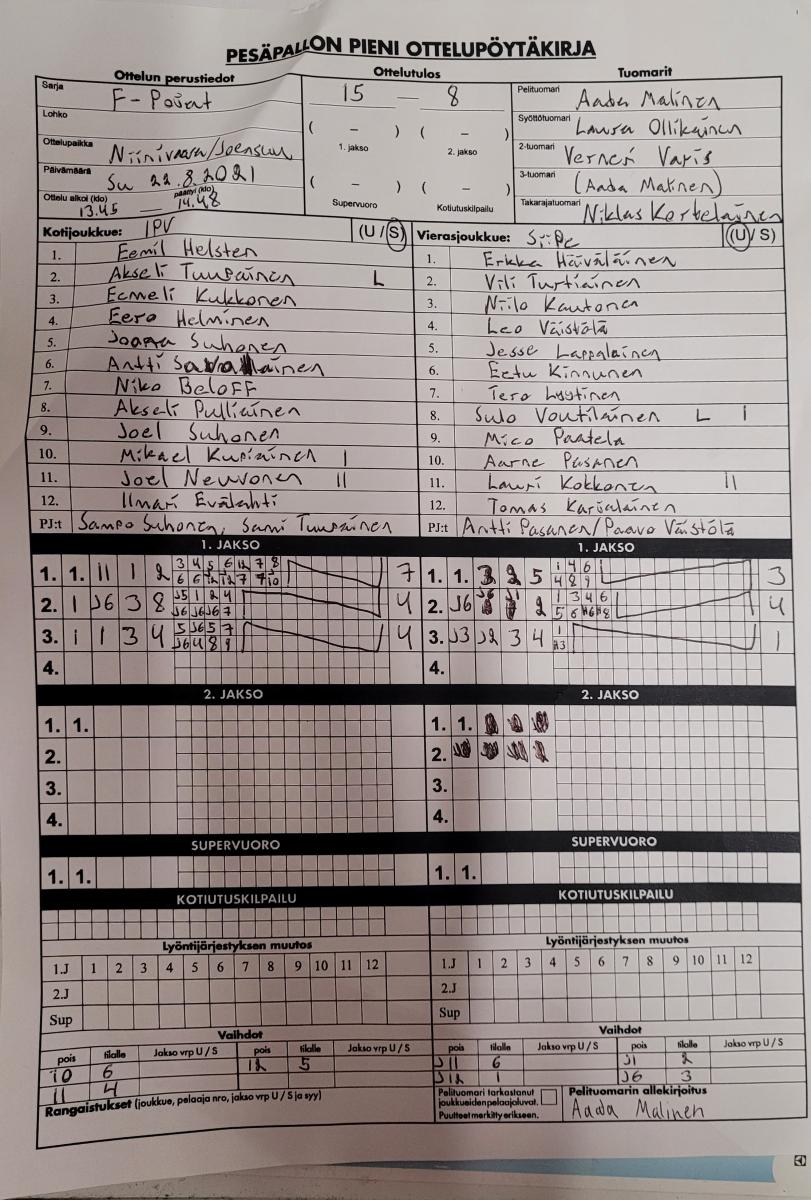 PESÄPALLON PIENI OTTELUPÖYTÄKIRJA
Ottelun perustiedot Ottelutulos Tuomarit
Sarja F-Pojat
Lohko
Ottelupaikka Niinivaara/Joensuu
Päivämäärä Su 22.8.2021
Ottelu alkoi (klo) päättyi (klo)
13.45 — 14.48
15 — 8
( – ) ( – )
1. jakso 2. jakso
( – ) ( – )
Supervuoro Kotiutuskilpailu
Pelituomari Aada Malinen
Syöttötuomari Laura Ollikainen
2-tuomari Verneri Varis
3-tuomari (Aada Malinen)
Takarajatuomari Niklas Korteläinen
Kotijoukkue: IPV (U / S)
1. Eemil Helsten
2. Akseli Tuupainen L
3. Eemeli Kukkonen
4. Eero Helminen
5. Joona Suhonen
6. Antti Savolainen
7. Niko Beloff
8. Akseli Pulliainen
9. Joel Suhonen
10. Mikael Kupiainen I
11. Joel Neuvonen II
12. Ilmari Evälahti
PJ:t Sampo Suhonen, Sami Tuupainen
Vierasjoukkue: SiiPe (U / S)
1. Erkka Häiväläinen
2. Vili Turtiainen
3. Niilo Kautonen
4. Leo Väistölä
5. Jesse Lappalainen
6. Eetu Kinnunen
7. Tero Lyytinen
8. Sulo Voutilainen L I
9. Mico Paatela
10. Aarne Pasanen
11. Lauri Kokkonen II
12. Tomas Karjalainen
PJ:t Antti Pasanen/Paavo Väistölä
1. JAKSO
1. 1. 11 1 2 7
2. 1 J6 3 8 4
3. 1 1 3 4 4
4.
1. JAKSO
1. 1. 3 2 5 3
2. J6 2 4
3. J3 J2 3 4 1
4.
2. JAKSO
1. 1.
2.
3.
4.
2. JAKSO
1. 1.
2.
3.
4.
SUPERVUORO
1. 1.
SUPERVUORO
1. 1.
KOTIUTUSKILPAILU
KOTIUTUSKILPAILU
Lyöntijärjestyksen muutos
1.J 1 2 3 4 5 6 7 8 9 10 11 12
2.J
Sup
Lyöntijärjestyksen muutos
1.J 1 2 3 4 5 6 7 8 9 10 11 12
2.J
Sup
Vaihdot
pois tilalle Jakso vrp U / S pois tilalle Jakso vrp U / S
10 6 12 5
11 4
Rangaistukset (joukkue, pelaaja nro, jakso vrp U / S ja syy)
Vaihdot
pois tilalle Jakso vrp U / S pois tilalle Jakso vrp U / S
J11 6 J1 2
J12 1 J6 3
Pelituomari tarkastanut
joukkueiden pelaajaluvat.
Puutteet merkitty erikseen.
Pelituomarin allekirjoitus
Aada Malinen